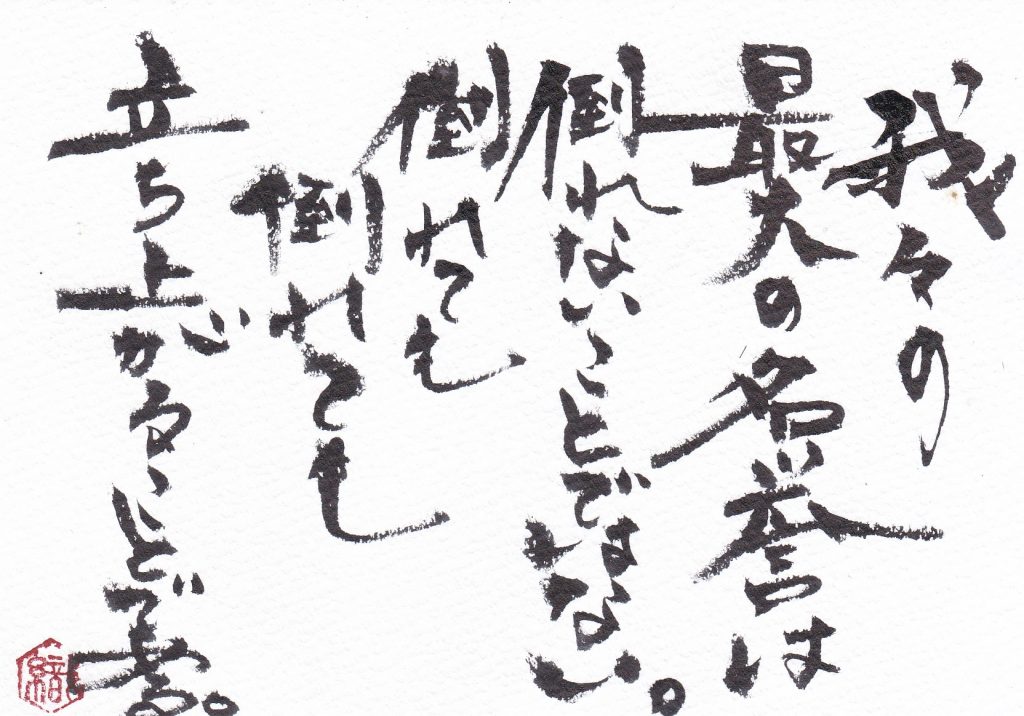 我々の
最大の名誉は
倒れないことではない。
倒れても
倒れても
立ち上がることである。